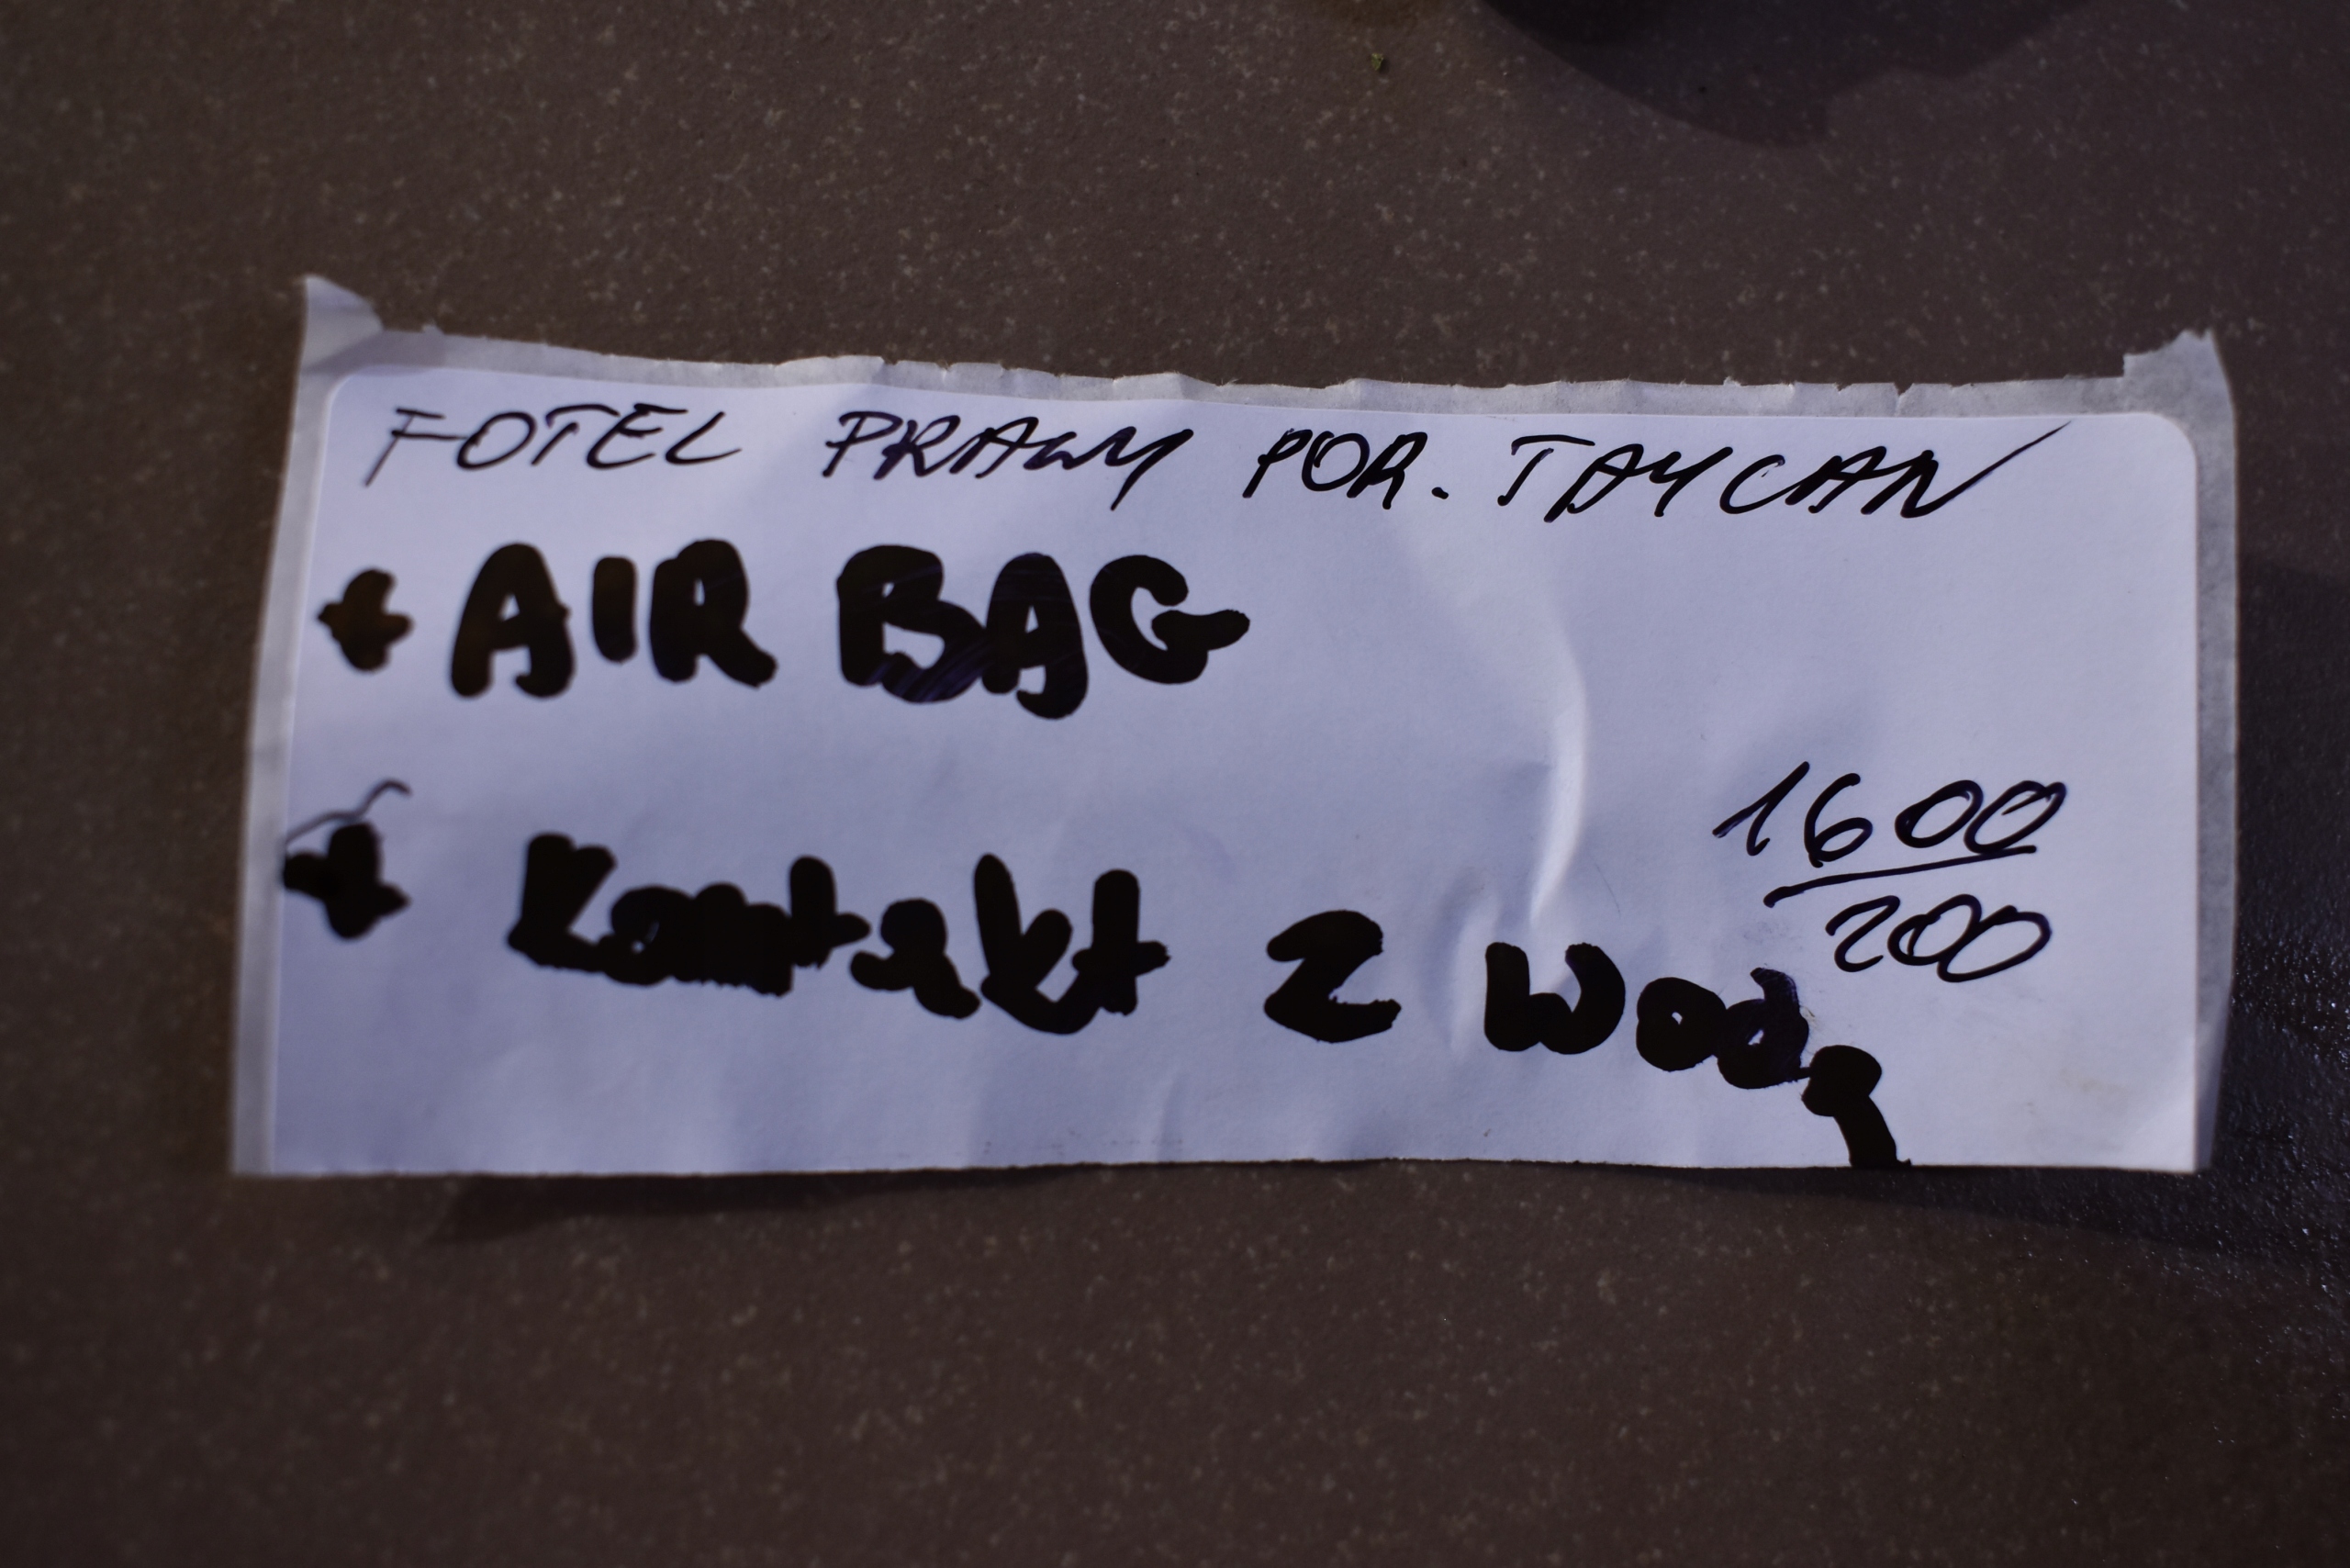 FOTEL PRAWY POR. TAYCAN
+ AIR BAG
1600
200
+ Kontakt z wodą